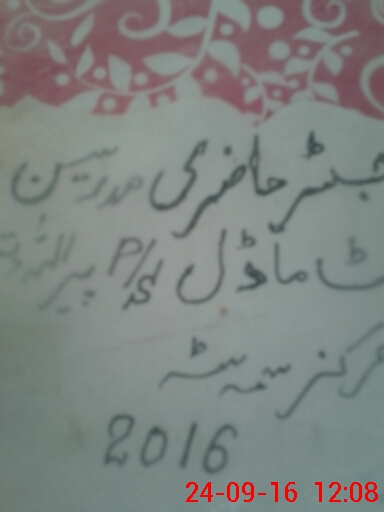 جسٹر حاضری مدرسین
ٹ ماڈل P/S پیر اللہ دتہ
مرکز سمہ سٹہ
2016
24-09-16 12:08